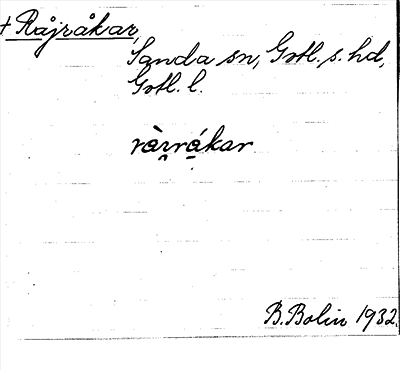 † Råjråkar,
Sanda sn, Gotl. s. hd,
Gotl. l.
ràı̯rákar
B. Bolin 1932.